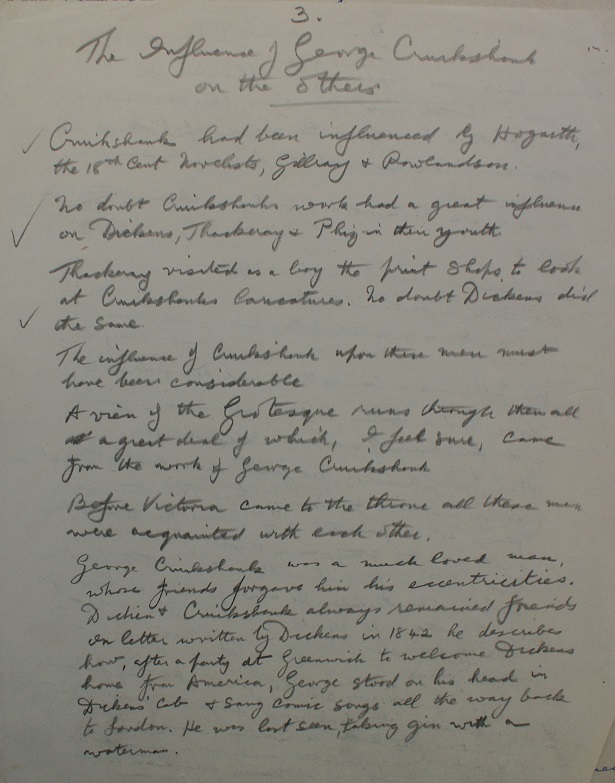 3.
The Influence of George Cruikshank
on the others
Cruikshank had been influenced by Hogarth,
the 18th Cent Novelists, Gillray & Rowlandson.
No doubt Cruikshanks work had a great influence
on Dickens, Thackeray & Phiz in their youth
Thackeray visited as a boy the print shops to look
at Cruikshanks Caricatures. No doubt Dickens did
the same
The influence of Cruikshank upon these men must
have been considerable
A vien of the Grotesque runs through them all
a great deal of which, I feel sure, came
from the work of George Cruikshank
Before Victoria came to the throne all these men
were acquainted with each other.
George Cruikshank was a much loved man,
whose friends forgave him his eccentricities.
& Cruikshank always remained friends
letter written by Dickens in 1842 he describes
how, after a party at Greenwich to welcome Dickens
home from America, George stood on his head in
Dickens' Cab & sang comic songs all the way back
to London. He was last seen, taking gin with a
waterman.